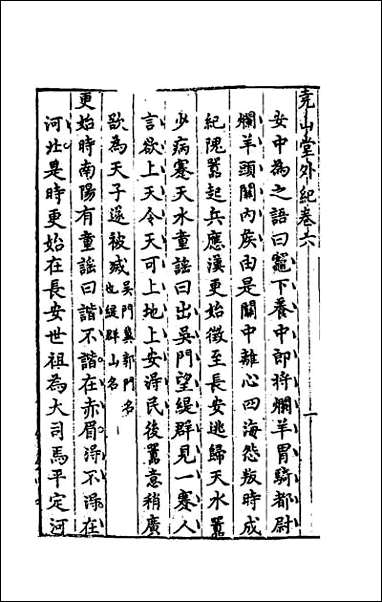 堯山堂外紀卷六
安中為之語曰竈下養中郎將爛羊胃騎都尉
爛羊頭關內侯由是關中離心四海怨叛時成
紀隗囂起兵應漢更始徵至長安逃歸天水囂
少病蹇天水童謡曰出吳門望緹群見一蹇人
言欲上天令天可上地上安淂民後囂意稍廣
欲為天子遂被滅吳門冀郭門名
也緹群山名
更始時南陽有童謡曰諧不諧在赤眉淂不淂在
河北是時更始在長安世祖為大司馬平定河